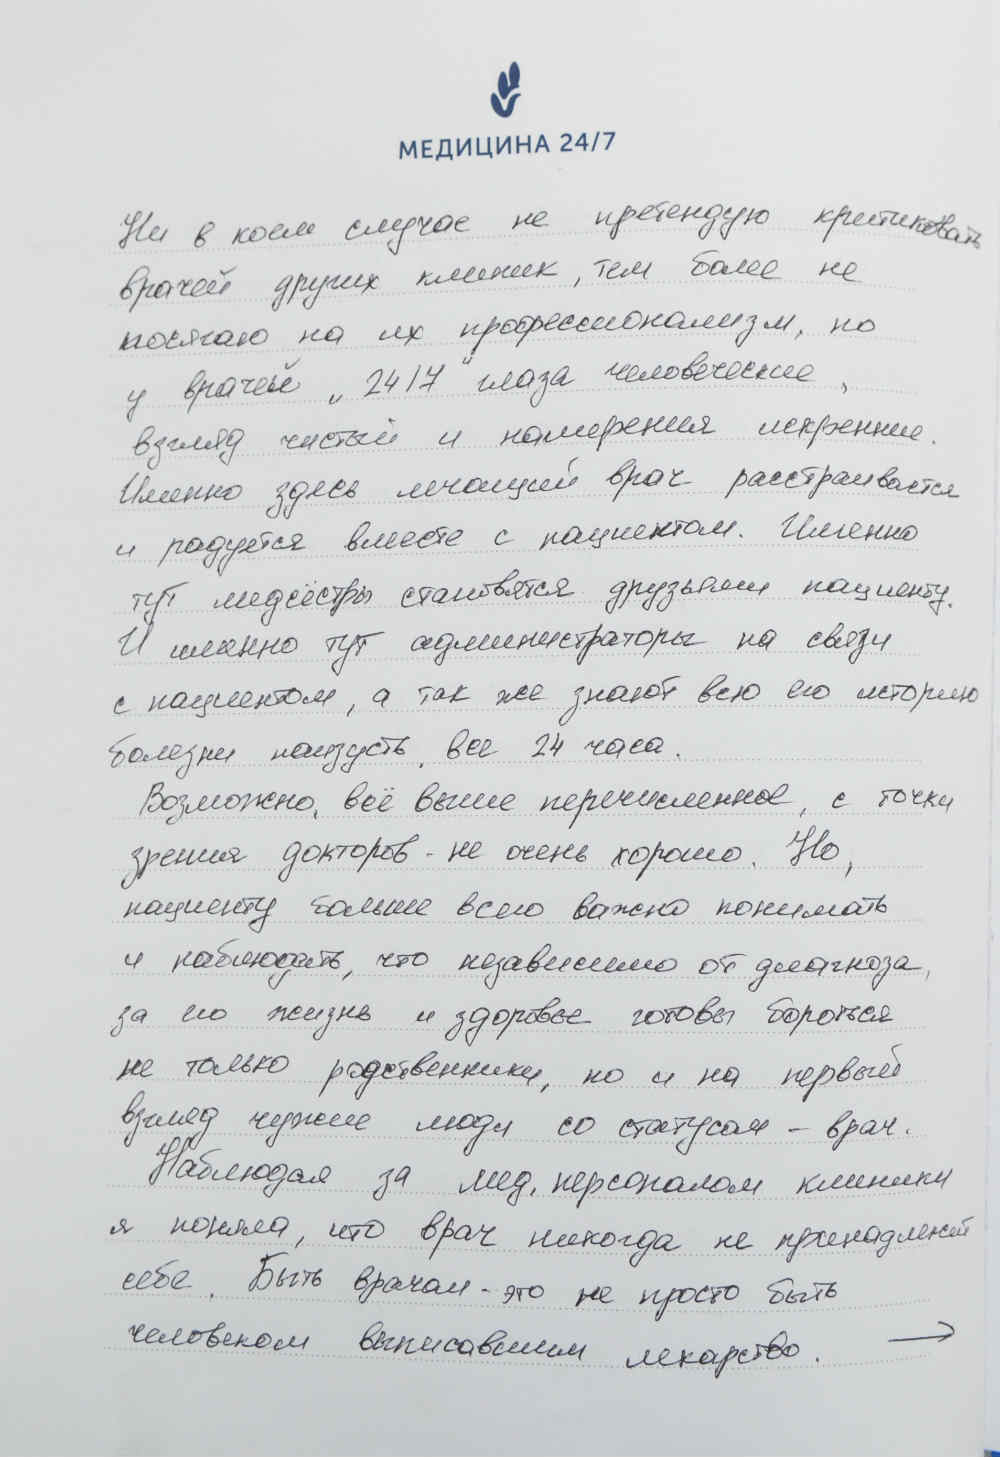 МЕДИЦИНА 24/7
Ни в коем случае не претендую критиковать
врачей других клиник, тем более не
посягаю на их профессионализм, но
у врачей „24/7" глаза человеческие,
взгляд чистый и намерения искренние.
Именно здесь лечащий врач расстраивается
и радуется вместе с пациентом. Именно
тут медсёстры становятся друзьями пациенту.
И именно тут администраторы на связи
с пациентом, а так же знают всю его историю
болезни наизусть, все 24 часа.
Возможно, всё выше перечисленное, с точки
зрения докторов - не очень хорошо. Но,
пациенту больше всего важно понимать
и наблюдать, что независимо от диагноза,
за его жизнь и здоровье готовы бороться
не только родственники, но и на первый
взгляд чужие люди со статусом – врач.
Наблюдая за мед. персоналом клиники
я поняла, что врач никогда не принадлежит
себе. Быть врачом - это не просто быть
человеком выписавшим лекарство. →